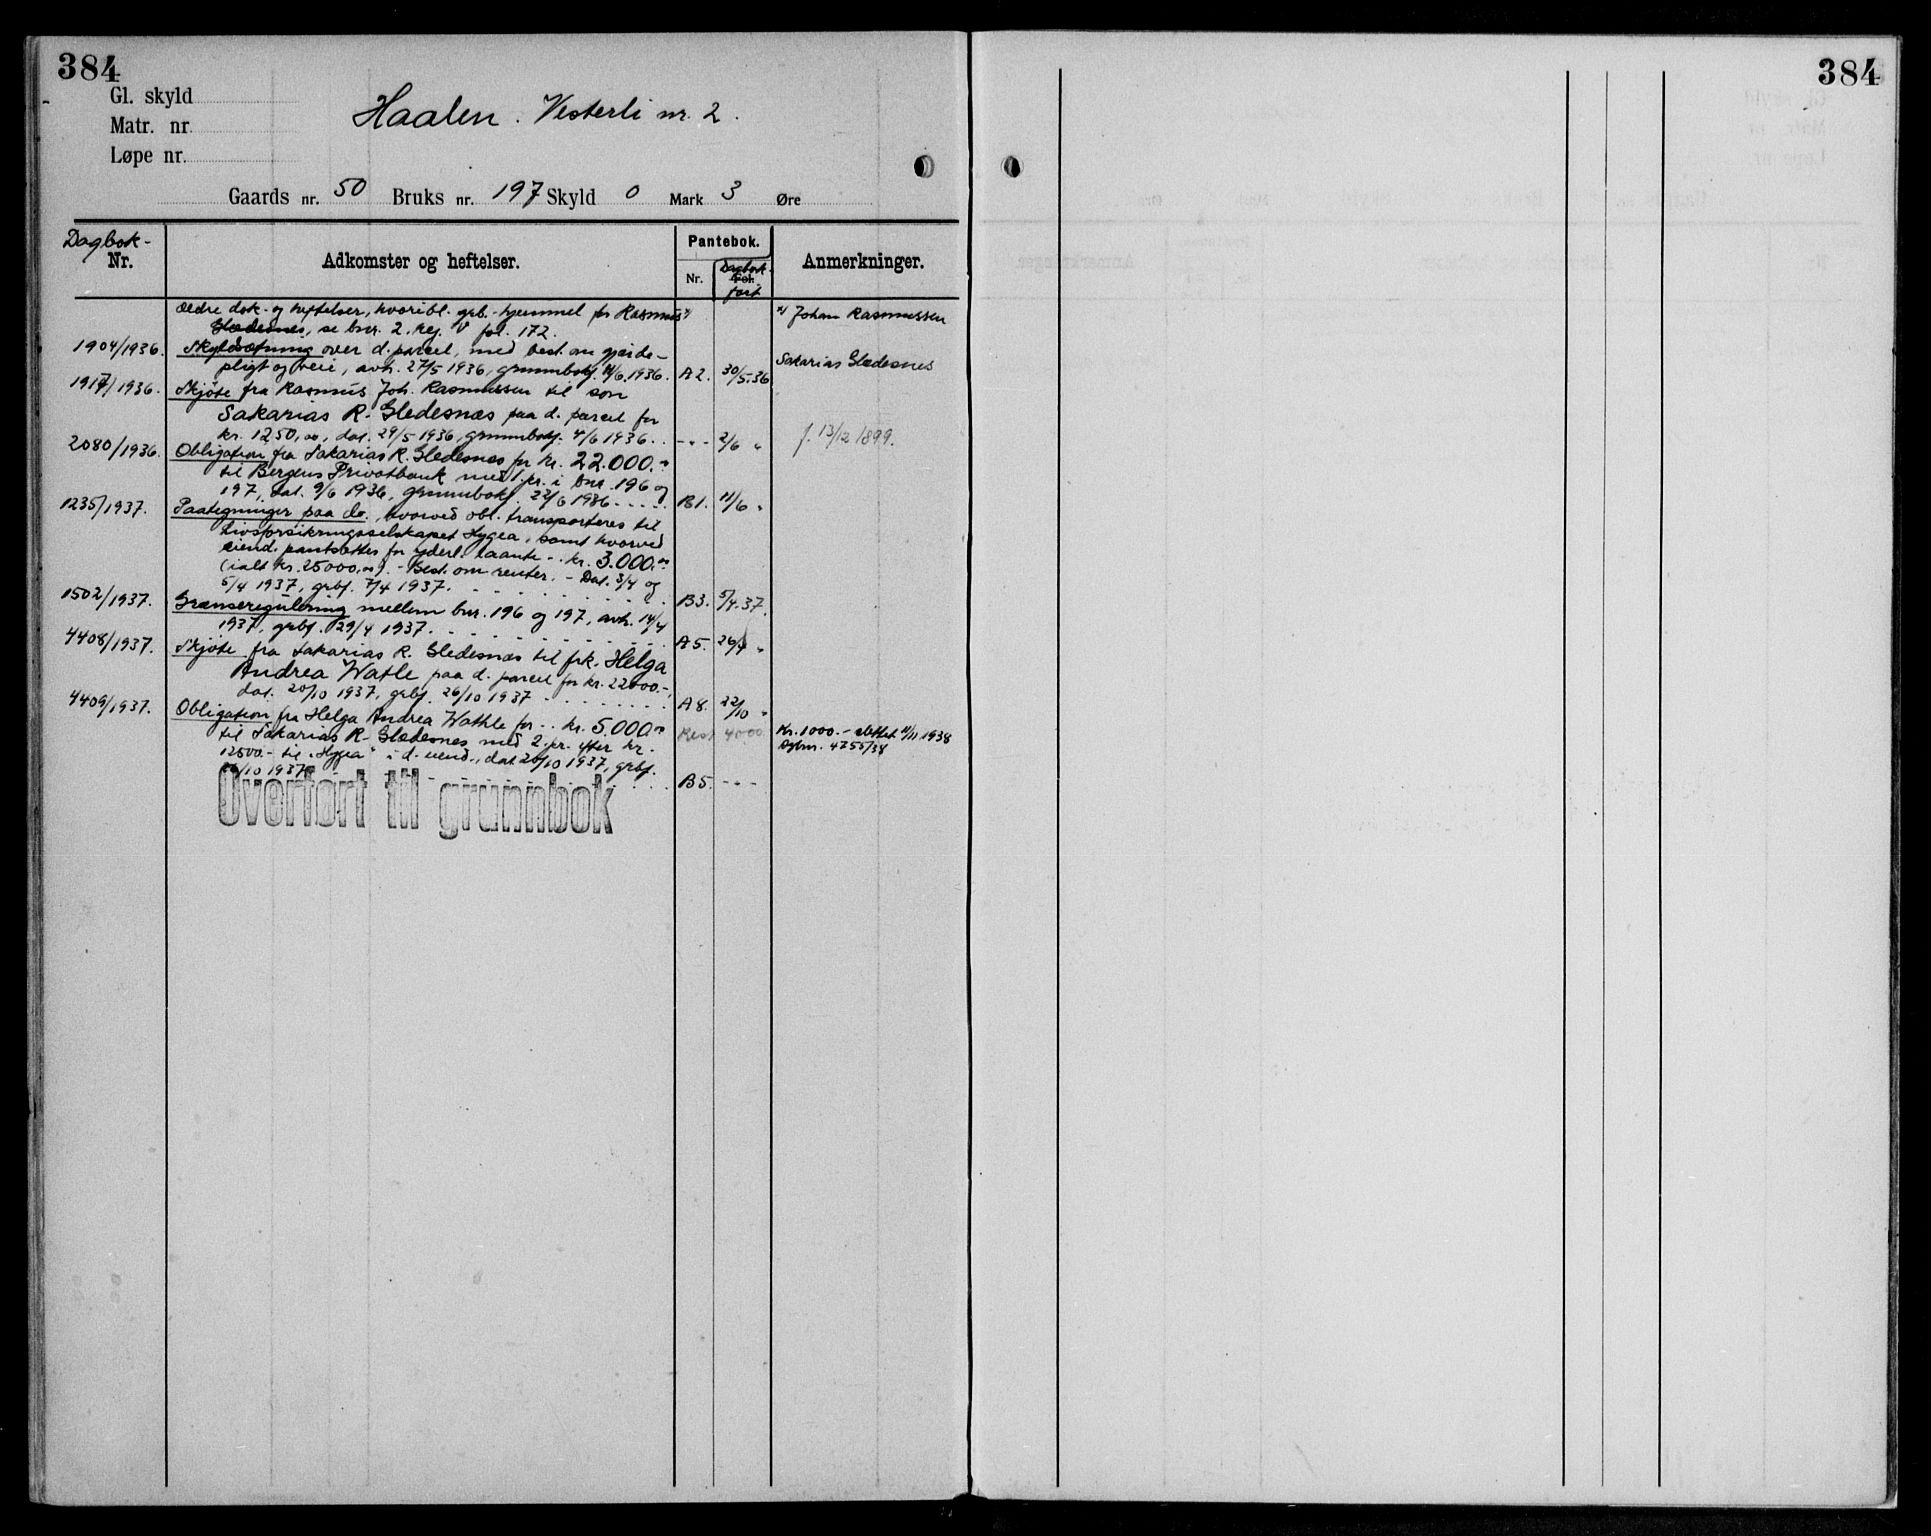 384
384
Gl. skyld
Matr. nr.
Løpe nr.
Haalen. Vesterli nr. 2.
Gaards nr. 50 Bruks nr. 197 Skyld 0 Mark 3 Øre
Dagbok-
Nr.
Adkomster og heftelser.
Pantebok.
Nr.
Dagbok-
Fol.
ført
Anmerkninger.
Ældre dok. og heftelser, hvoribl. grb.-hjemmel for Rasmus x)
Gledesnes, se bnr. 2. Reg. V fol. 172.
x) Johan Rasmussen
1904/1936. Skyldsætning over d. parcel, med best. om gjærde-
pligt og veie, avh. 27/5 1936, grunnbokf. 4/6 1936. A2. 30/5.36
Sakarias Gledesnes
1917/1936. Skjøte fra Rasmus Joh. Rasmussen til søn
Sakarias R. Gledesnæs paa d. parcel for
kr. 1250,00, dat. 29/5 1936, grunnbokf. 4/6 1936. . - - - 2/6 "
f. 13/12 1899.
2080/1936. Obligation fra Sakarias R. Gledesnes for kr. 22.000.00
til Bergens Privatbank med 1. pr. i bnr. 196 og
197, dat. 9/6 1936, grunnbokf. 22/6 1936 - . . . . B1. 11/6 "
1235/1937. Paategninger paa do., hvorved obl. transporteres til
Livsforsikringsselskapet Hygea, samt hvorved
eiend. pantsættes for yderl. laante - . kr. 3.000.00
(ialt kr. 25000,00). - Best. om renter. - Dat. 3/4 og
5/4 1937, grbf. 7/4 1937. . . . B3. 5/4.37.
1502/1937. Grænseregulering mellem bnr. 196 og 197, avh. 14/4
1937, grbf. 29/4 1937. . . . A5. 26/4 "
4408/1937. Skjøte fra Sakarias R. Gledesnæs til frk. Helga
Andrea Watle paa d. parcel for kr. 22000.-,
dat. 20/10 1937, grbf. 26/10 1937 . . . A8. 22/10 "
4409/1937. Obligation fra Helga Andrea Wathle for . . kr. 5.000.00
Rest 4000
Kr. 1000.- slettet 11/11 1938
Dgbnr. 4755/38
til Sakarias R. Gledesnes med 2. pr. efter kr.
12500.- til "Hygea" i d. eiend., dat. 20/10 1937, grbf.
26/10 1937. . . . B5. - - -
Overført til grunnbok